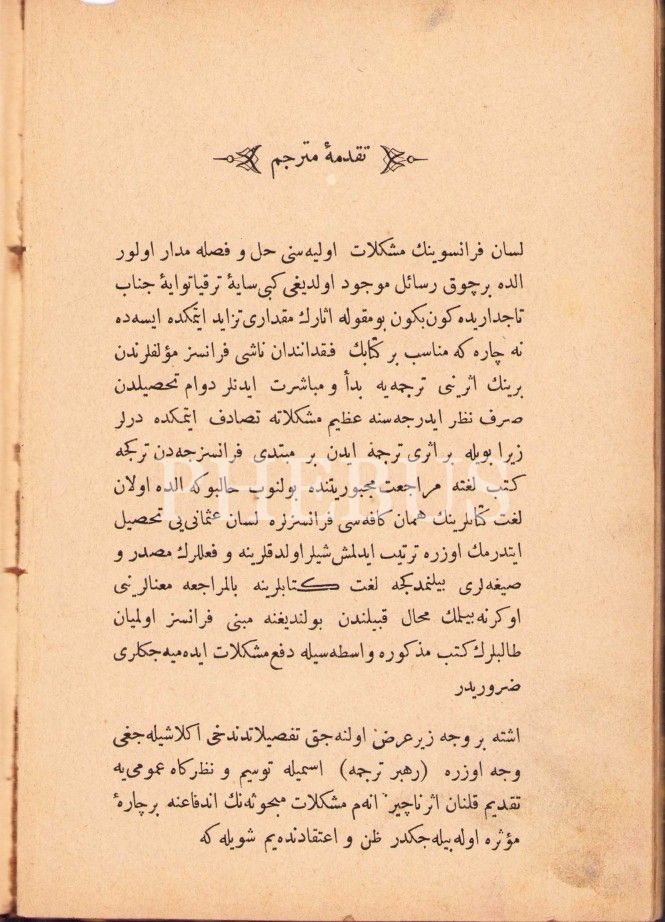 تقدمهٔ مترجم
لسان فرانسوینك مشكلات اولیه‌سنی حل و فصله مدار اولور
الده برچوق رسائل موجود اولدیغی كبی سایهٔ ترقیاتوایهٔ جناب
تاجداریده كون‌بكون بومقوله اثارك مقداری تزاید ایتمكده ایسه‌ده
نه چاره كه مناسب بر كتابك فقداندان ناشی فرانسز مؤلفلرندن
برینك اثرینی ترجمه‌یه بدأ و مباشرت ایدنلر دوام تحصیلدن
صرف نظر ایدرجه‌سنه عظیم مشكلاته تصادف ایتمكده درلر
زیرا بویله بر اثری ترجمه ایدن بر مبتدی فرانسزجه‌دن تركجه
كتب لغته مراجعت مجبوریتنده بولنوب حالبوكه الده اولان
لغت كتابلرینك همان كافه‌سی فرانسزلره لسان عثمانی‌یی تحصیل
ایتدرمك اوزره ترتیب ایدلمش شیلر اولدقلرینه و فعللرك مصدر و
صیغه‌لری بیلنمدكجه لغت كتابلرینه بالمراجعه معنالرینی
اوكرنه‌بیلمك محال قبیلندن بولندیغنه مبنی فرانسز اولمیان
طالبلرك كتب مذكوره واسطه‌سیله دفع مشكلات ایده‌میه‌جكلری
ضروریدر
اشته بر وجه زیر عرض اولنه‌جق تفصیلاتدندخی اكلاشیله‌جغی
وجه اوزره (رهبر ترجمه) اسمیله توسیم و نظركاه عمومی‌یه
تقدیم قلنان اثر ناچیز انه‌م مشكلات مبحوثه‌نك اندفاعنه برچارهٔ
مؤثره اوله‌بیله‌جكدر ظن و اعتقادنده‌یم شویله كه
PHEBUS